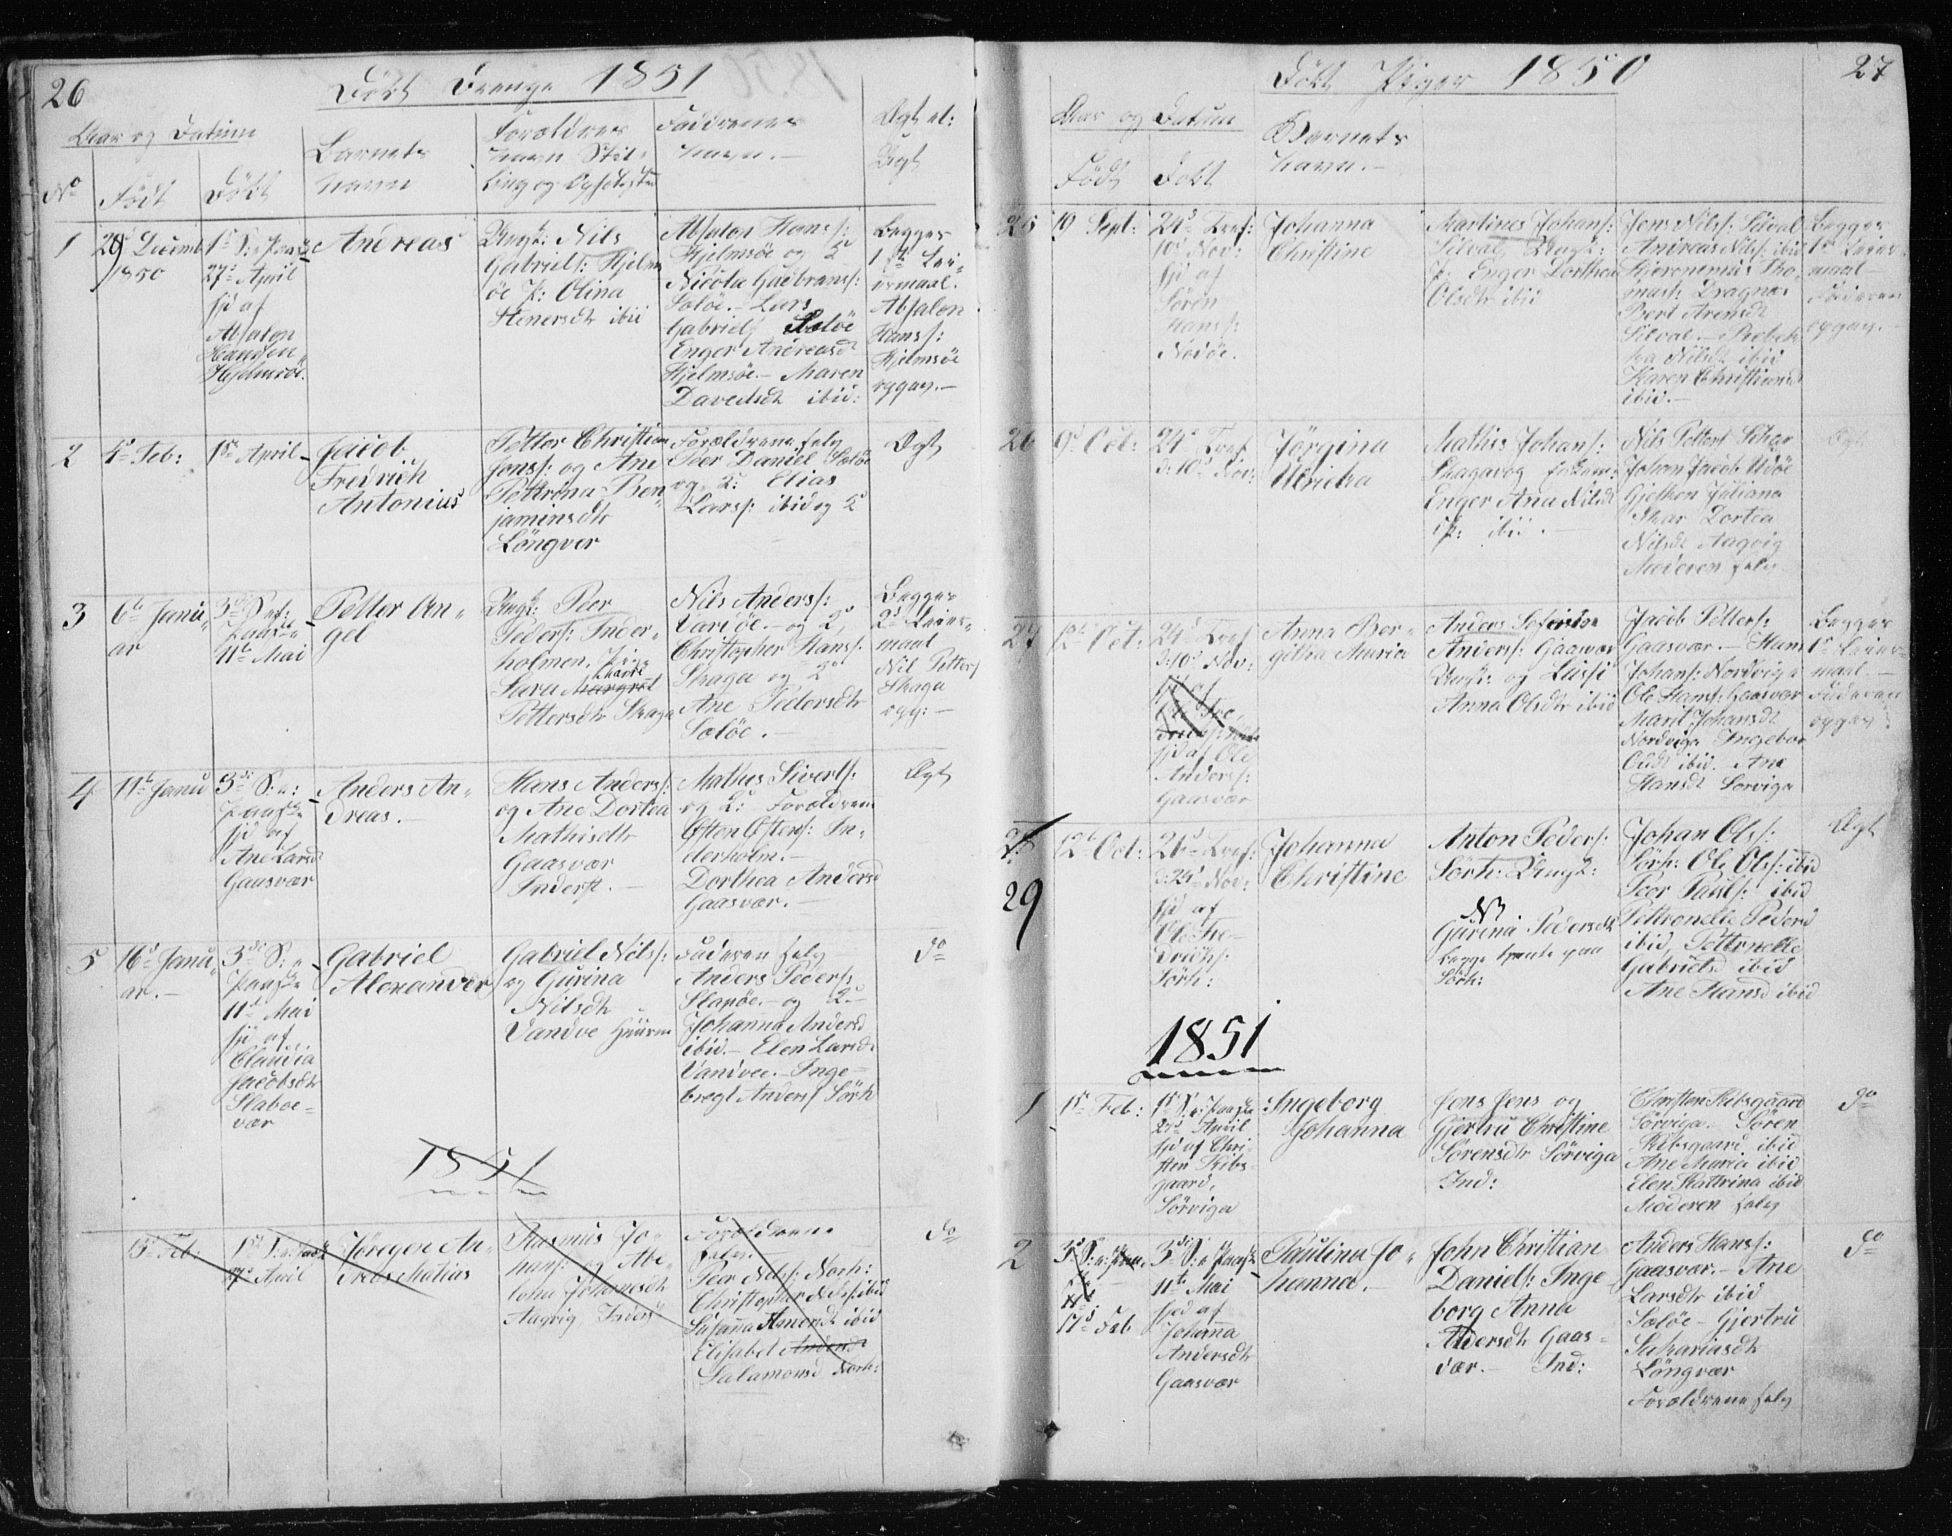 26
Födt Drenge 1851
Aar og Datum
No
Födt
Döbt
Barnets
Navn
Forældres
Navn Stil-
ling og Opholdsted
Faddernes
Navn.-
Ægt el:
Uægt
1
29 Decemb
1850
1ste S: e: Paaske
27de April
hjd af
Absalon
Hansen
Hjelmsöe.
Andreas
Ungk: Nils
Gabriels: Hjelm
öe P: Olina
Stenersdtr ibid
Absalon Hans:
Hjelmsöe og
Nicolai Guebrans:
Solöe.- Lars
Gabriels Solöe
Enger Andreasd
Hjelmsöe.- Maren
Davedsdtr ibid:
Begges
1ste Lei-
ermaal.
Absalon
Hans:
Hjelmsöe
opgav.-
2
4de Feb:
1ste April
Jacob
Fredrich
Antonius
Petter Christian
Jons: og Ane
Pettrina Ben
jaminsdtr
Löngver
Forældrene selv
Peer Daniel Solöe
og K: Elias
Lars: ibid og K
Ægt
3
6te Janu
ar
3die S. ef:
Paaske
11te Mai
Petter An-
gel
Ungk: Peer
Peders: Inder-
holmen. Pige
Sara Margret
Pettersdtr Skaga
Nils Anders:
Varöe.- og K,
Christopher Hans:
Skaga og K
Ane Pedersdtr
Solöe.-
Begges
2det Leier-
maal
Nil Petters
Skaga
opg:-
4
11te Janu
3die S: e:
Paaske
hjd af
Ane Larsd
Gaasvær
Anders An-
dreas.-
Hans Anders:
og Ane Dortea
Mathisdtr
Gaasvær
Inderst.-
Mathis Siverts:
og K: Forældrene
Often Ofters: In-
derholm.-
Dorthea Andersd
Gaasvær.-
Ægt
5
16de Janu
ar.-
3die S: e
Paaske
11te Mai
hjd af
Claudia
Jacobsdtr
Slaboe-
vær
Gabriel
Alexander
Gabriel Nils:
og Gurina
Nilsdtr
Vandve Huusm
Faderen selv
Anders Peders:
Slapöe.- og K.
Johanna Andersd
ibid.- Elen Larsd
Vandve.- Inge-
bregt Anders Sörh
do
1851
15de Feb:
1ste S: e: Paaske
27de April
Jörgen An-
dreas Matias
Rasmus Jo-
hans: og Abe-
lona Johansdtr
Aagvig Inders
Forældrene
selv.
Peer Nils: Norh:
Christopher Nils: ibid
Susanna Amundt ibid
Elisabet Andersd
Salamonsd Norh:
do
27
Födt Piger 1850
Aar og Datum
Födt
Döbt
Barnets
Navn.-
25
19 Sept:
24de Tref:
10de Nov:
hjd af
Sören
Hans:
Nordöe.
Johanna
Christine
Martines Johans:
Silval Ungk:
P: Enger Dorthea
Olsdtr ibid
Jens Nils: Silval
Andreas Nils: ibid
Hieronemus Tho-
mas: Dragnæs
Berit Arensd
Silval.- Rebek
ka Nilsdtr ibid
Karen Christiansd
ibid.-
Begges
1ste Leier-
maal-
Faderen
opgav.-
26
9de Oct:
24de Tref
d: 10de Nov:
Jörgina
Ulricha
Mathis Johans:
Skagavog Enkem:
Enger Ana Nilsdtr
P: ibid.-
Nils Petters Skar
Johan Jacob Udöe
Gjesken Juliana
Skar Dortea
Nilsdtr Aagvig
Moderen selv
Ægt
27
12te Oct:
24de Tref
d: 10de Nov:
hjd af Ole
Anders:
Gaasvær
Anna Ber-
githa Maria
Anders Severin
Anders: Gaasvær
Ungk: og Luisi
Anna Olsdtr ibid
Jacob Petters:
Gaasvær.- Hans
Johans: Nordviga
Ole Hans: Gaasvær
Marit Johansdt
Nordviga Ingebor
Oudt ibid. Ane
Hansdt Sorviga
Begges
1ste Leier-
maal.-
Faderen
opgav
28
29
12te Oct:
26de Tref:
d: 24de Nov:
hjd af
Ole Fre-
drechs:
Sörh:
Johanna
Christine
Anton Peders:
Sörh: Ungk:
NB
Gurina Pedersdtr
begge tjente paa
Sörh:
Johan Ols:
Sörh: Ole Ols: ibid
Peer Pauls: ibid
Pettronelle Pedersd
ibid, Pettrnelle
Gabrielsd ibid
Ane Hansd ibid
Ægt
1851
1
15de Feb:
1ste S: e: Paaske
27de April
hjd af Chri-
sten Ribs-
gaard,
Sörviga
Ingeborg
Johanna
Jens Jens og
Gjertru Christine
Sorensdtr Sörviga
Ind:
Christen Ribsgaard
Sörviga. Sören
Ribsgaard ibid
Ane Maria ibid
Elen Kattrina ibid
Moderen selv
do
2
17de Feb
3die S: e Paaske
11te Mai
hjd af
Johanna
Andersdtr
Gaasvær
Paulina Jo-
hanna.-
John Christian
Daniels: Inge
borg Anna
Andersdtr Gaas-
vær.- Ind:
Anders Hans:
Gaasvær.- Ane
Larsdtr ibid
Solöe- Gjertru
Sakariasdtr
Löngvær
Forældrene selv
do